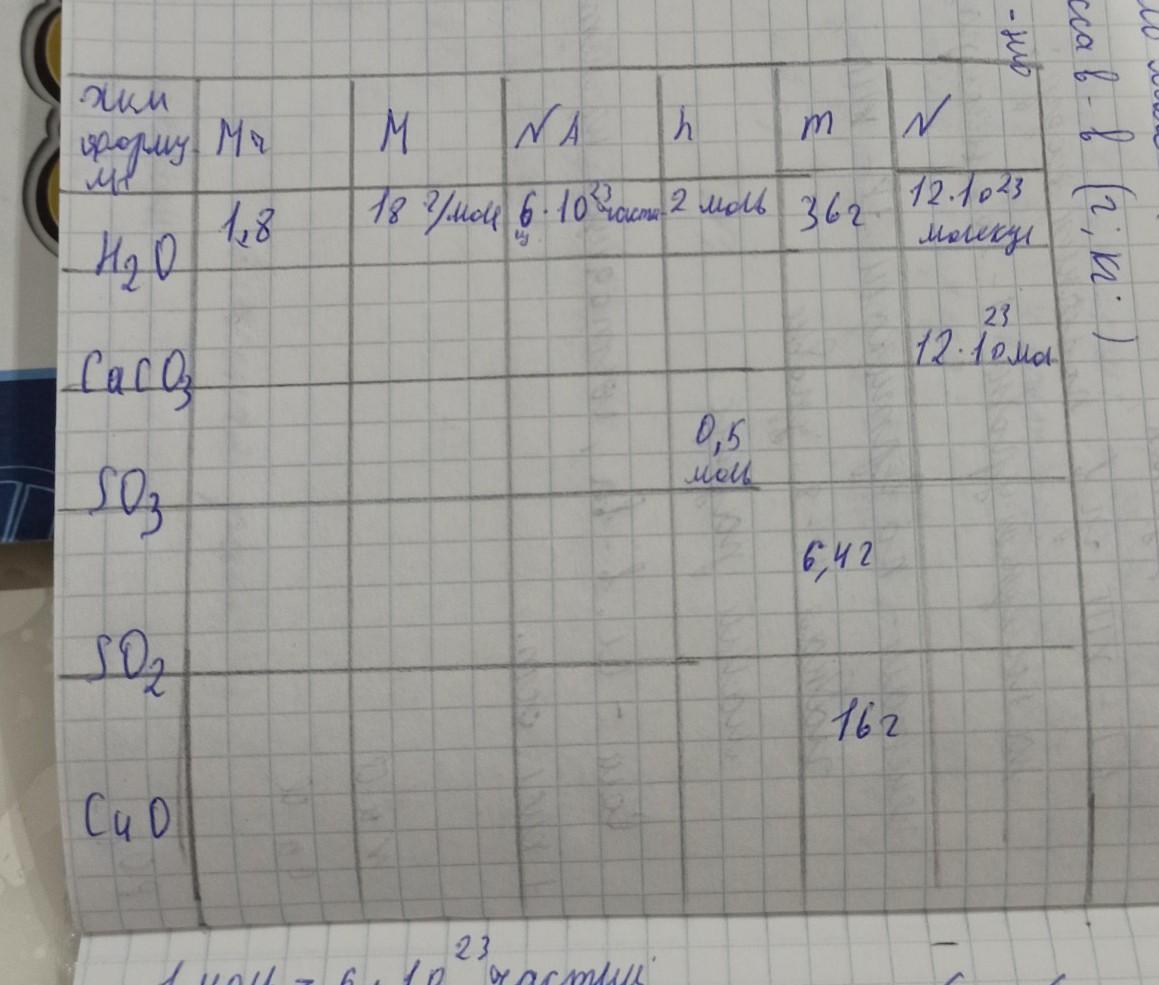 хим
форму
ла
Mr
M
NA
n
m
N
H2O
1,8
18 г/моль
6·10²³ части
ц
2 моль
36г
12·10²³
молекул
CaCO3
12·10²³ мол
SO3
0,5
моль
SO2
6,4г
CuO
16г
1 моль = 6·10²³ частиц
сса в-в (г, кг.)